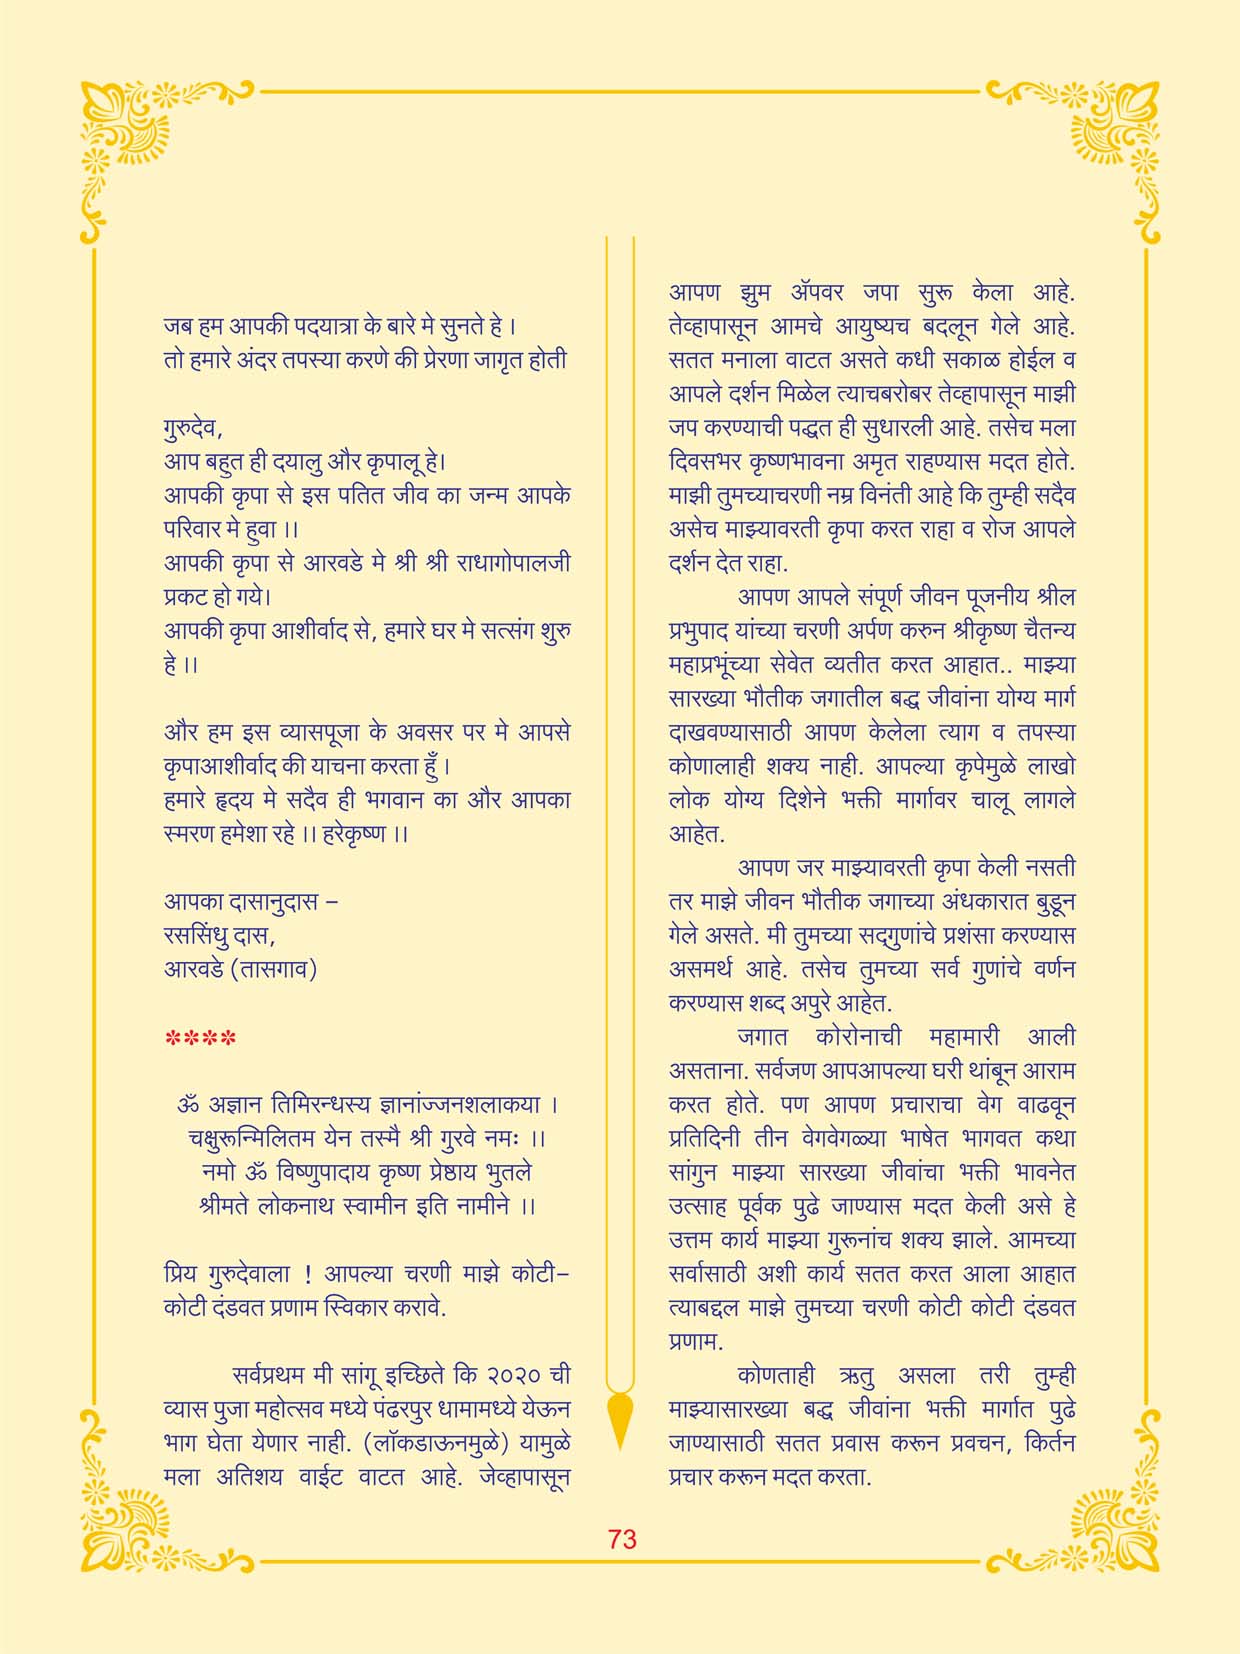 जब हम आपकी पदयात्रा के बारे मे सुनते हे ।
तो हमारे अंदर तपस्या करणे की प्रेरणा जागृत होती
गुरुदेव,
आप बहुत ही दयालु और कृपालू हे।
आपकी कृपा से इस पतित जीव का जन्म आपके
परिवार मे हुवा ।।
आपकी कृपा से आरवडे मे श्री श्री राधागोपालजी
प्रकट हो गये।
आपकी कृपा आशीर्वाद से, हमारे घर मे सत्संग शुरु
हे ।।
और हम इस व्यासपूजा के अवसर पर मे आपसे
कृपाआशीर्वाद की याचना करता हुँ ।
हमारे हृदय मे सदैव ही भगवान का और आपका
स्मरण हमेशा रहे ।। हरेकृष्ण ।।
आपका दासानुदास –
रससिंधु दास,
आरवडे (तासगाव)
****
ॐ अज्ञान तिमिरन्धस्य ज्ञानांज्जनशलाकया ।
चक्षुरून्मिलितम येन तस्मै श्री गुरवे नमः ।।
नमो ॐ विष्णुपादाय कृष्ण प्रेष्ठाय भुतले
श्रीमते लोकनाथ स्वामीन इति नामीने ।।
प्रिय गुरुदेवाला ! आपल्या चरणी माझे कोटी–
कोटी दंडवत प्रणाम स्विकार करावे.
सर्वप्रथम मी सांगू इच्छिते कि २०२० ची
व्यास पुजा महोत्सव मध्ये पंढरपुर धामामध्ये येऊन
भाग घेता येणार नाही. (लॉकडाऊनमुळे) यामुळे
मला अतिशय वाईट वाटत आहे. जेव्हापासून
आपण झुम ॲपवर जपा सुरू केला आहे.
तेव्हापासून आमचे आयुष्यच बदलून गेले आहे.
सतत मनाला वाटत असते कधी सकाळ होईल व
आपले दर्शन मिळेल त्याचबरोबर तेव्हापासून माझी
जप करण्याची पद्धत ही सुधारली आहे. तसेच मला
दिवसभर कृष्णभावना अमृत राहण्यास मदत होते.
माझी तुमच्याचरणी नम्र विनंती आहे कि तुम्ही सदैव
असेच माझ्यावरती कृपा करत राहा व रोज आपले
दर्शन देत राहा.
आपण आपले संपूर्ण जीवन पूजनीय श्रील
प्रभुपाद यांच्या चरणी अर्पण करुन श्रीकृष्ण चैतन्य
महाप्रभूंच्या सेवेत व्यतीत करत आहात.. माझ्या
सारख्या भौतीक जगातील बद्ध जीवांना योग्य मार्ग
दाखवण्यासाठी आपण केलेला त्याग व तपस्या
कोणालाही शक्य नाही. आपल्या कृपेमुळे लाखो
लोक योग्य दिशेने भक्ती मार्गावर चालू लागले
आहेत.
आपण जर माझ्यावरती कृपा केली नसती
तर माझे जीवन भौतीक जगाच्या अंधकारात बुडून
गेले असते. मी तुमच्या सद्‌गुणांचे प्रशंसा करण्यास
असमर्थ आहे. तसेच तुमच्या सर्व गुणांचे वर्णन
करण्यास शब्द अपुरे आहेत.
जगात कोरोनाची महामारी आली
असताना. सर्वजण आपआपल्या घरी थांबून आराम
करत होते. पण आपण प्रचाराचा वेग वाढवून
प्रतिदिनी तीन वेगवेगळ्या भाषेत भागवत कथा
सांगुन माझ्या सारख्या जीवांचा भक्ती भावनेत
उत्साह पूर्वक पुढे जाण्यास मदत केली असे हे
उत्तम कार्य माझ्या गुरूनांच शक्य झाले. आमच्या
सर्वासाठी अशी कार्य सतत करत आला आहात
त्याबद्दल माझे तुमच्या चरणी कोटी कोटी दंडवत
प्रणाम.
कोणताही ऋतु असला तरी तुम्ही
माझ्यासारख्या बद्ध जीवांना भक्ती मार्गात पुढे
जाण्यासाठी सतत प्रवास करून प्रवचन, किर्तन
प्रचार करून मदत करता.
73